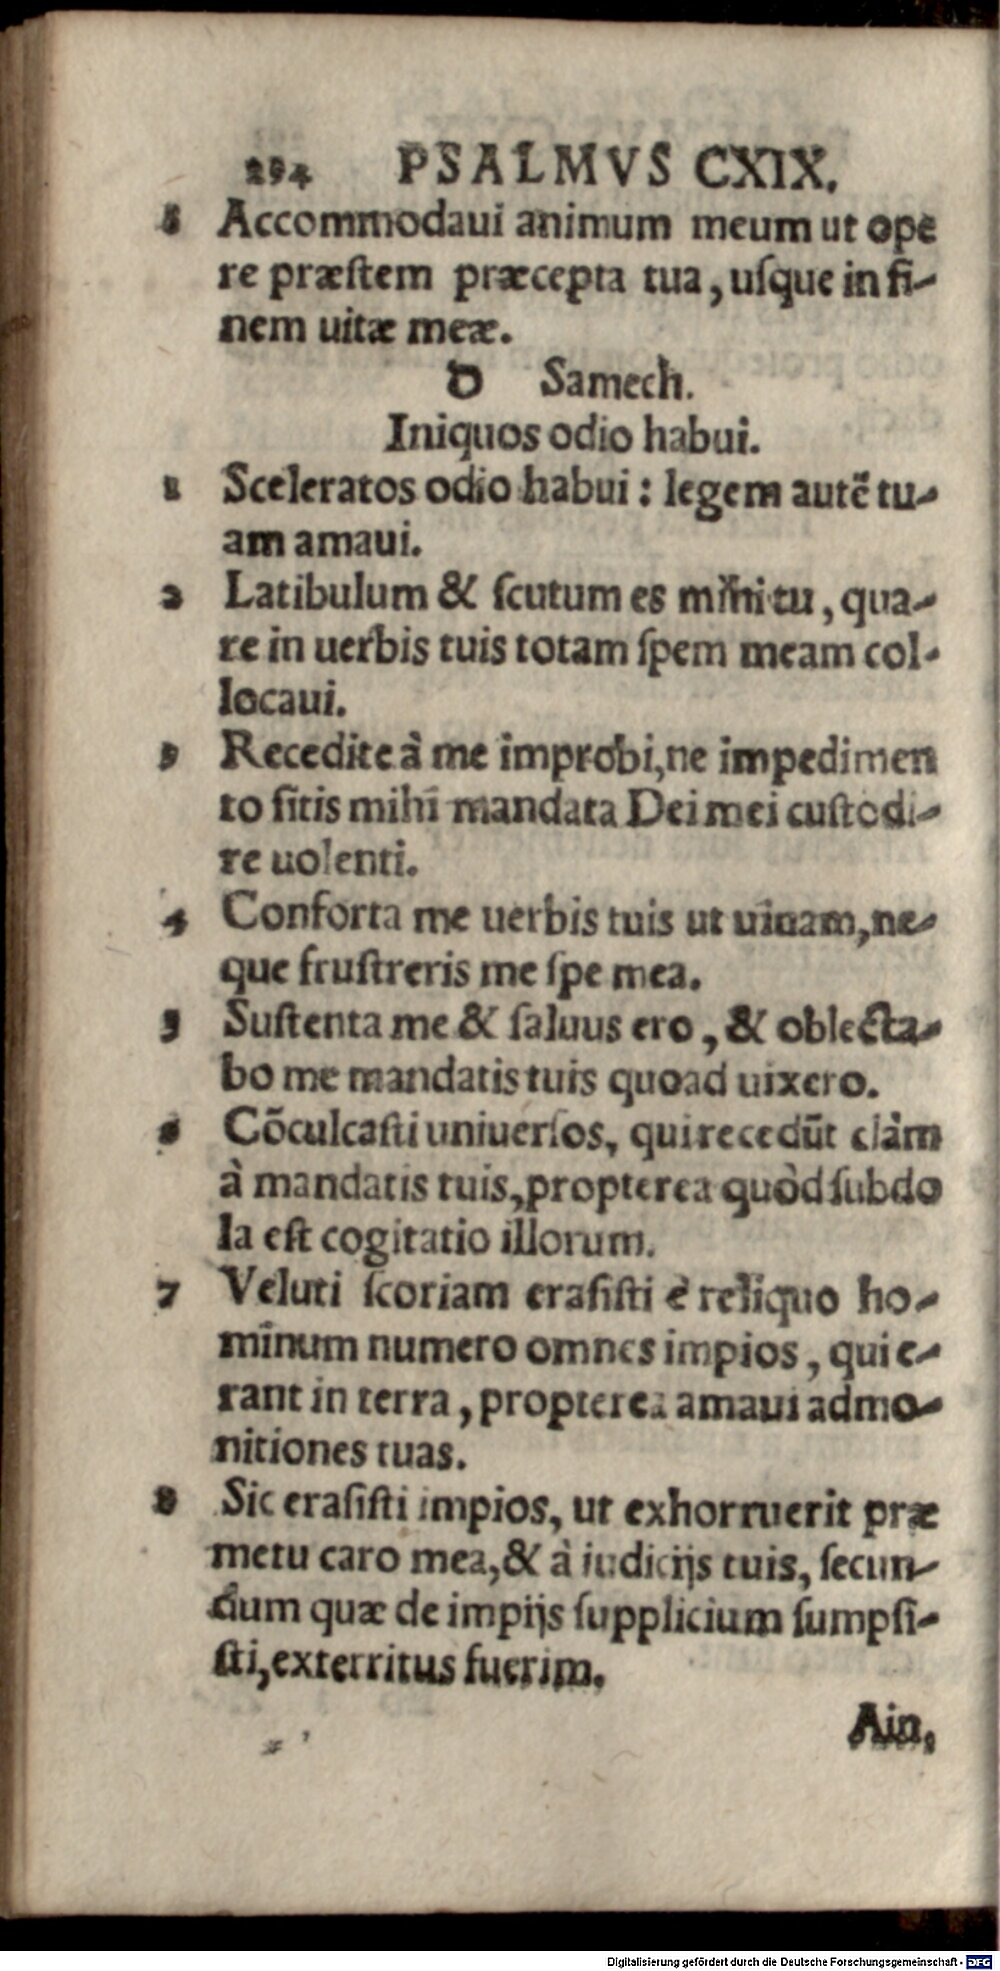 294 PSALMVS CXIX.
8 Accommodaui animum meum ut ope
re præstem præcepta tua, uſque in fi-
nem uitæ meæ.
ס Samech.
Iniquos odio habui.
1 Sceleratos odio habui: legem autē tu-
am amaui.
2 Latibulum & ſcutum es mihi tu, qua-
re in uerbis tuis totam ſpem meam col-
locaui.
3 Recedite à me improbi, ne impedimen
to ſitis mihi mandata Dei mei cuſtodi-
re uolenti.
4 Conforta me uerbis tuis ut uiuam, ne-
que fruſtreris me ſpe mea.
5 Suſtenta me & ſaluus ero, & oblecta-
bo me mandatis tuis quoad uixero.
6 Cōculcaſti uniuerſos, qui recedūt clàm
à mandatis tuis, propterea quòd ſubdo
la eſt cogitatio illorum.
7 Veluti ſcoriam eraſiſti è reliquo ho-
minum numero omnes impios, qui e-
rant in terra, propterea amaui admo-
nitiones tuas.
8 Sic eraſiſti impios, ut exhorruerit præ
metu caro mea, & à iudicijs tuis, ſecun-
dum quæ de impijs ſupplicium ſumpſi-
ſti, exterritus fuerim.
Ain,
Digitalisierung gefördert durch die Deutsche Forschungsgemeinschaft - DFG